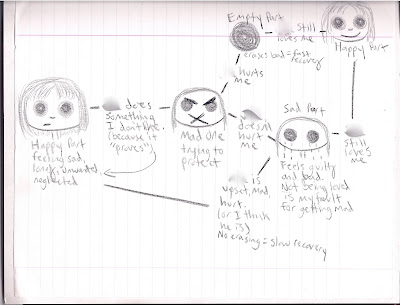 Empty Part
still
loves me
Happy Part
erases bad = fast
recovery
hurts
me
does
something
I don't like
(because it
"proves")
Mad one
trying to
protect
doesn't
hurt me
Sad Part
still
loves me
Happy Part
feeling sad,
lonely, unwanted,
neglected
is
upset, mad,
hurt.
(or I think
he is)
No erasing = slow recovery
Feels guilty
and bad.
Not being loved
is my fault
for getting mad